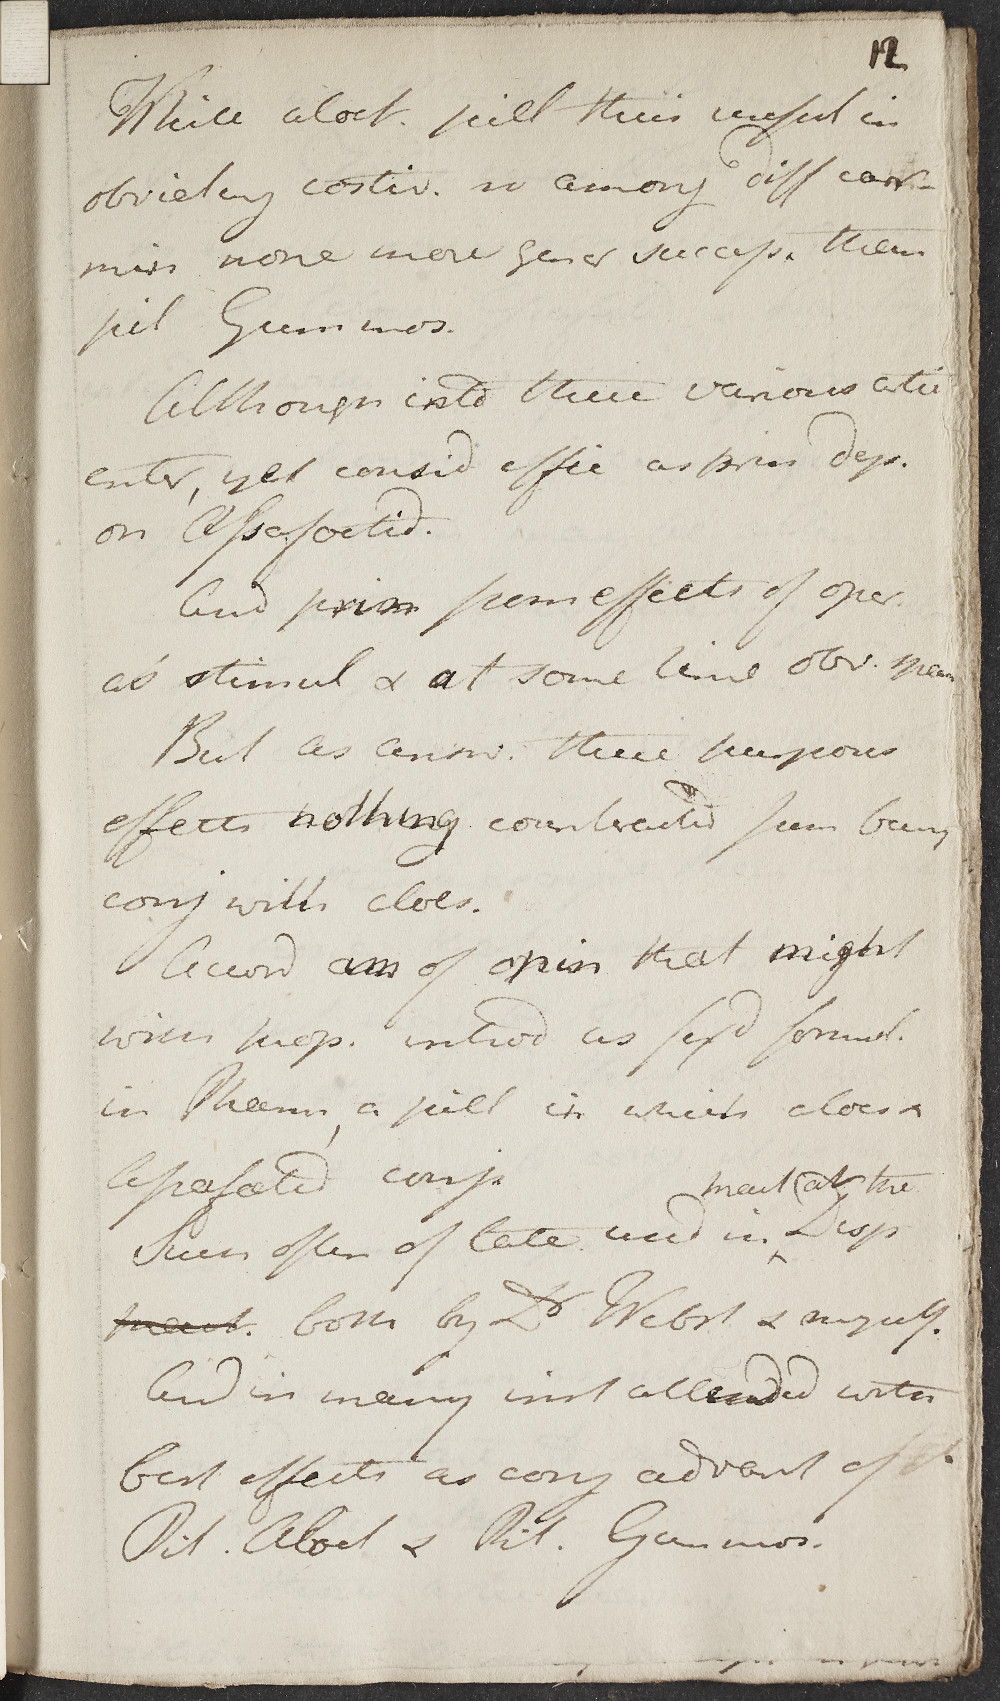 12
While aloet. pill thus useful in
obviating costiv. so among diff car-
min none more gener success. than
pil Gummos.
Although into these various artic
enter, yet consid effic as prin dep.
on Assafoetid.
And prim seem effects of oper.
as stimul & at same time obv. spasm
But as answ. these purposes
effects nothing counteracted from being
conj with aloes.
Accord am of opin that might
with prop. introd as fix'd formul.
in Pharm, a pill in which aloes &
Assafoetid conj.
Such often of late used in ment at the Disp
ment. both by Dr Webst & myself.
And in many inst attended with
best effects as conj advant of
Pil. Aloet & Pil. Gummos.